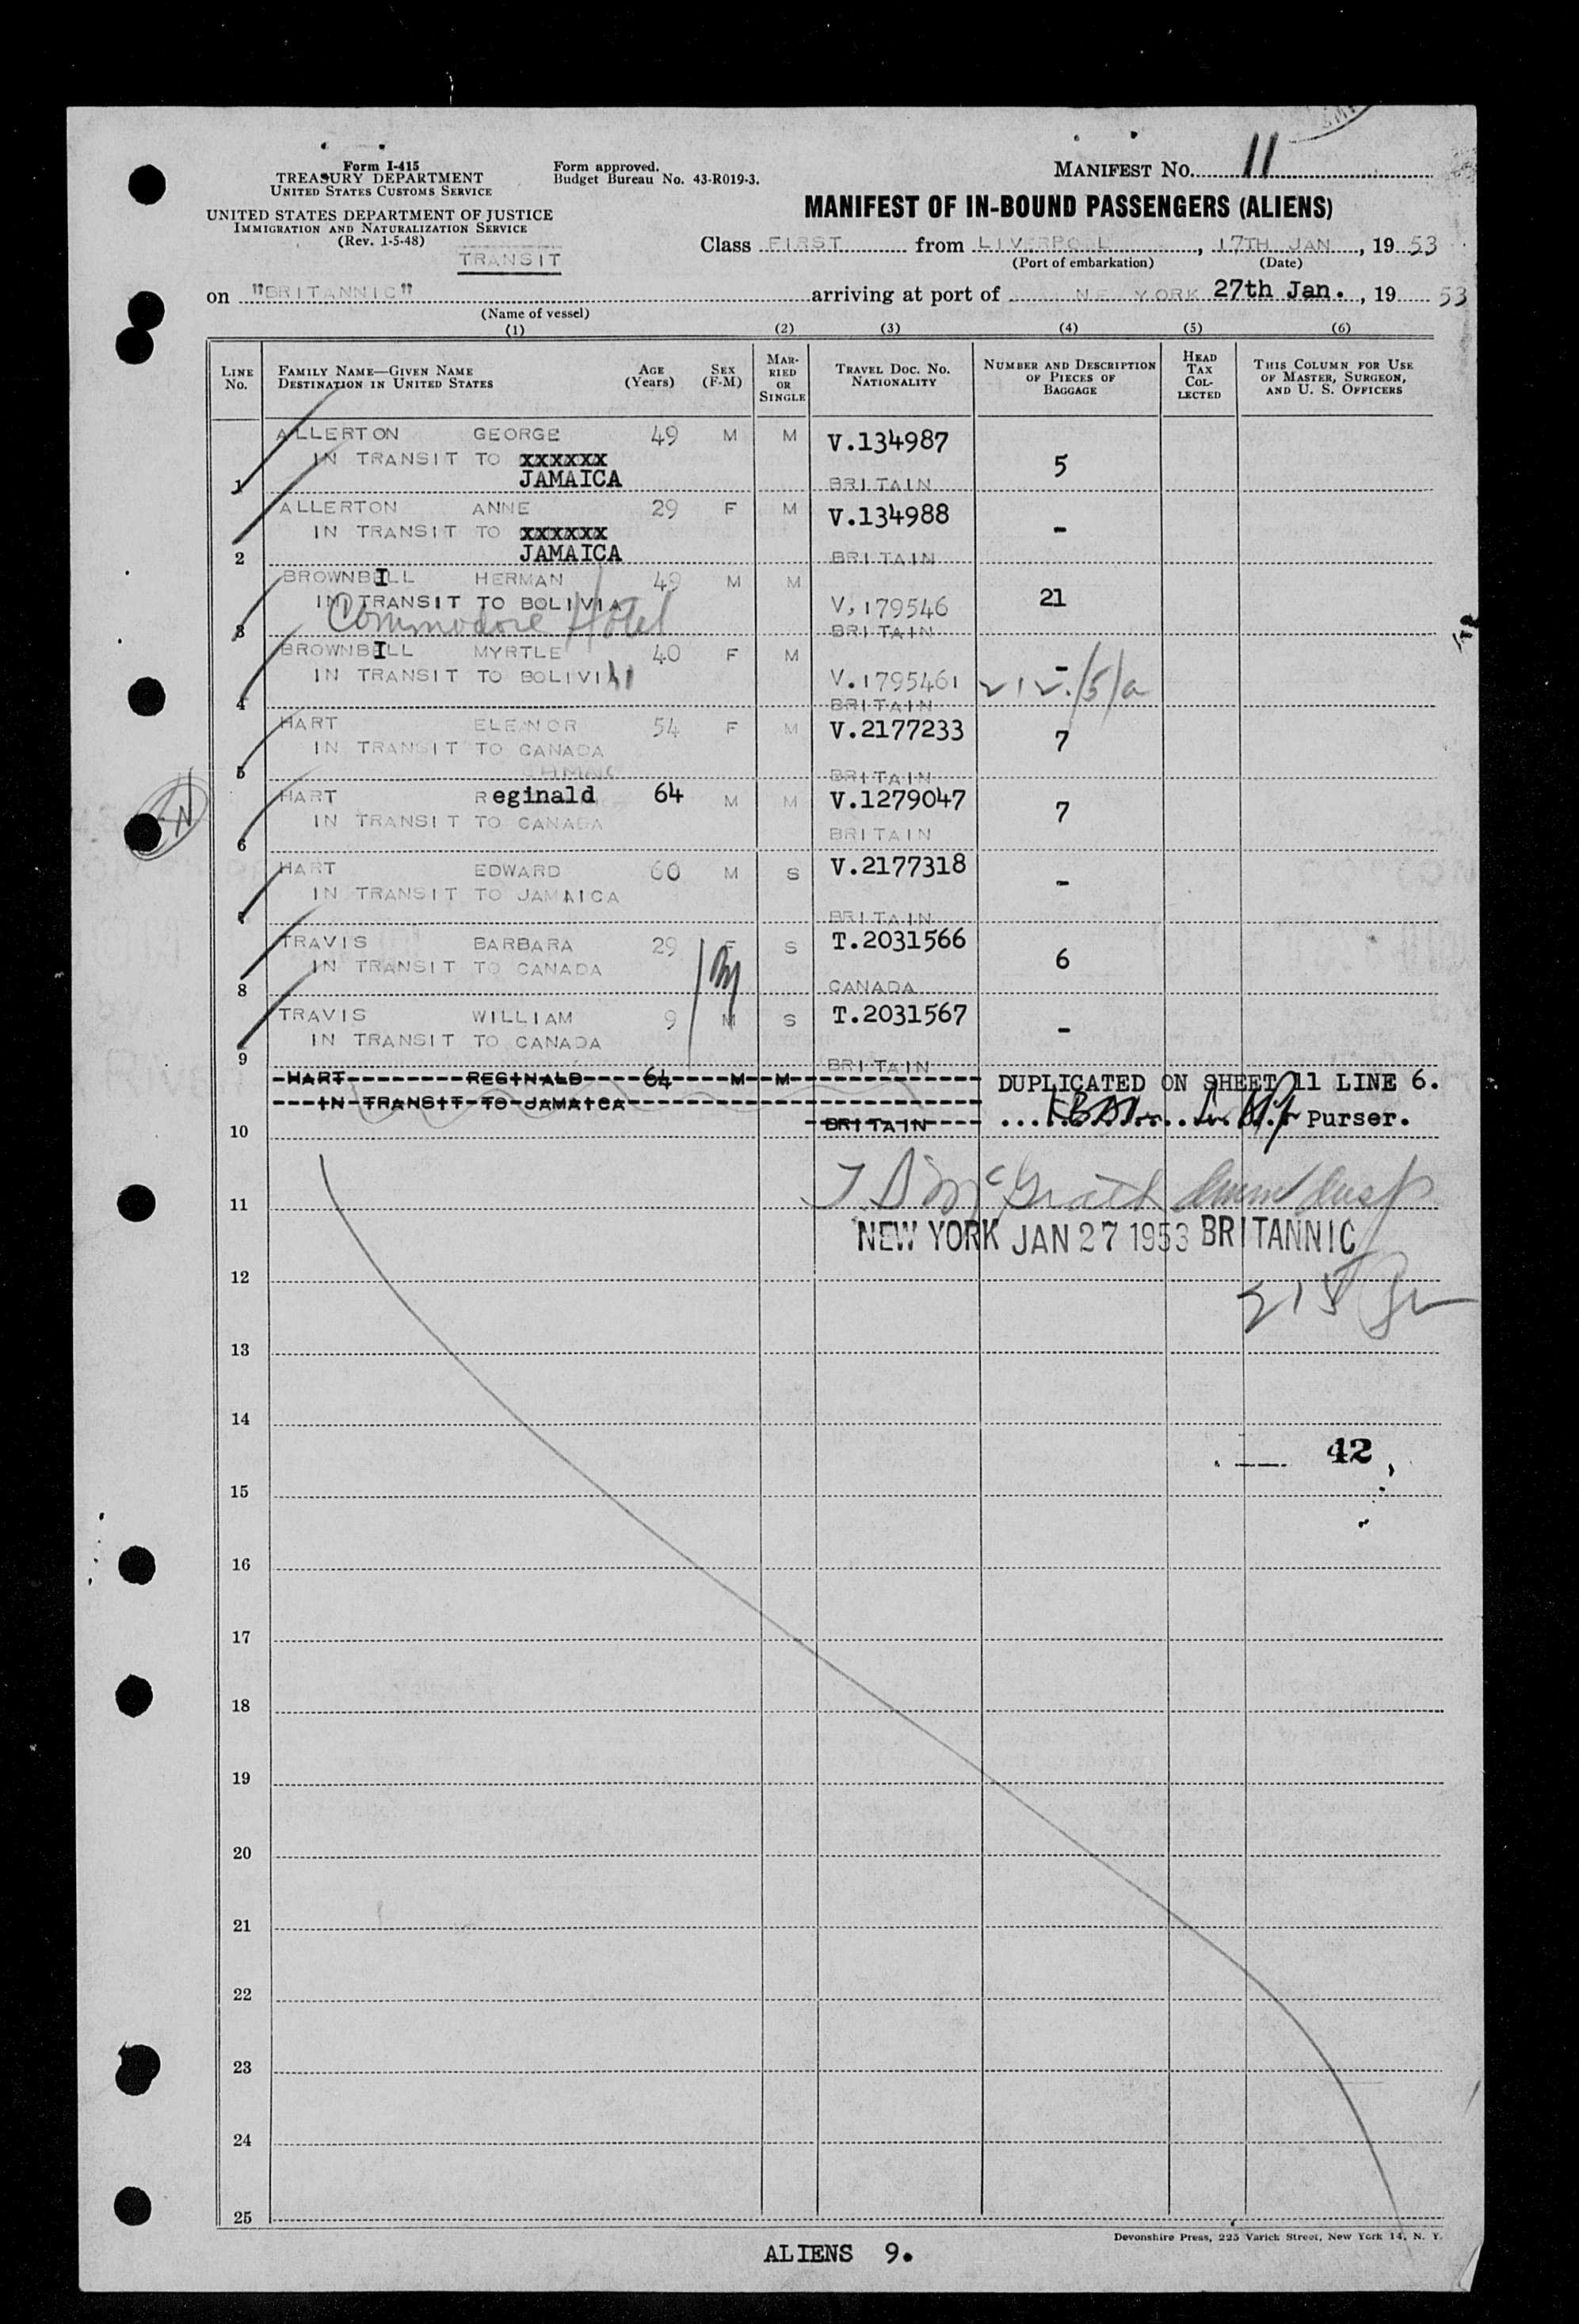 Form I-415
TREASURY DEPARTMENT
UNITED STATES CUSTOMS SERVICE
Form approved.
Budget Bureau No. 43-R019-3.
MANIFEST No. 11
UNITED STATES DEPARTMENT OF JUSTICE
IMMIGRATION AND NATURALIZATION SERVICE
(Rev. 1-5-48)
TRANSIT
MANIFEST OF IN-BOUND PASSENGERS (ALIENS)
Class FIRST from LIVERPOOL, 17TH JAN, 19 53
(Port of embarkation) (Date)
on "BRITANNIC" arriving at port of NEW YORK 27th Jan., 19 53
(Name of vessel)
(1) (2) (3) (4) (5) (6)
LINE No. FAMILY NAME—GIVEN NAME DESTINATION IN UNITED STATES AGE (Years) SEX (F-M) MARRIED OR SINGLE TRAVEL DOC. NO. NATIONALITY NUMBER AND DESCRIPTION OF PIECES OF BAGGAGE HEAD TAX COLLECTED THIS COLUMN FOR USE OF MASTER, SURGEON, AND U. S. OFFICERS
ALLERTON GEORGE 49 M M V.134987
IN TRANSIT TO xxxxxx 5
1 JAMAICA BRITAIN
ALLERTON ANNE 29 F M V.134988
IN TRANSIT TO xxxxxx -
2 JAMAICA BRITAIN
BROWNBILL HERMAN 49 M M
IN TRANSIT TO BOLIVIA V.179546 21
3 Commodore Hotel BRITAIN
BROWNBILL MYRTLE 40 F M -
IN TRANSIT TO BOLIVIA V.1795461 212.15/a
4 BRITAIN
HART ELEANOR 54 F M V.2177233
IN TRANSIT TO CANADA 7
5 BRITAIN
HART Reginald 64 M M V.1279047
IN TRANSIT TO CANADA 7
6 BRITAIN
HART EDWARD 60 M S V.2177318
IN TRANSIT TO JAMAICA -
7 BRITAIN
TRAVIS BARBARA 29 F S T.2031566
IN TRANSIT TO CANADA 6
8 CANADA
TRAVIS WILLIAM 9 M S T.2031567
IN TRANSIT TO CANADA -
9 BRITAIN
HART REGINALD 64 M M DUPLICATED ON SHEET 11 LINE 6.
IN TRANSIT TO JAMAICA
10 BRITAIN Purser.
11
NEW YORK JAN 27 1953 BRITANNIC
12
13
14
42
15
16
17
18
19
20
21
22
23
24
25
Devonshire Press, 225 Varick Street, New York 14, N. Y.
ALIENS 9.